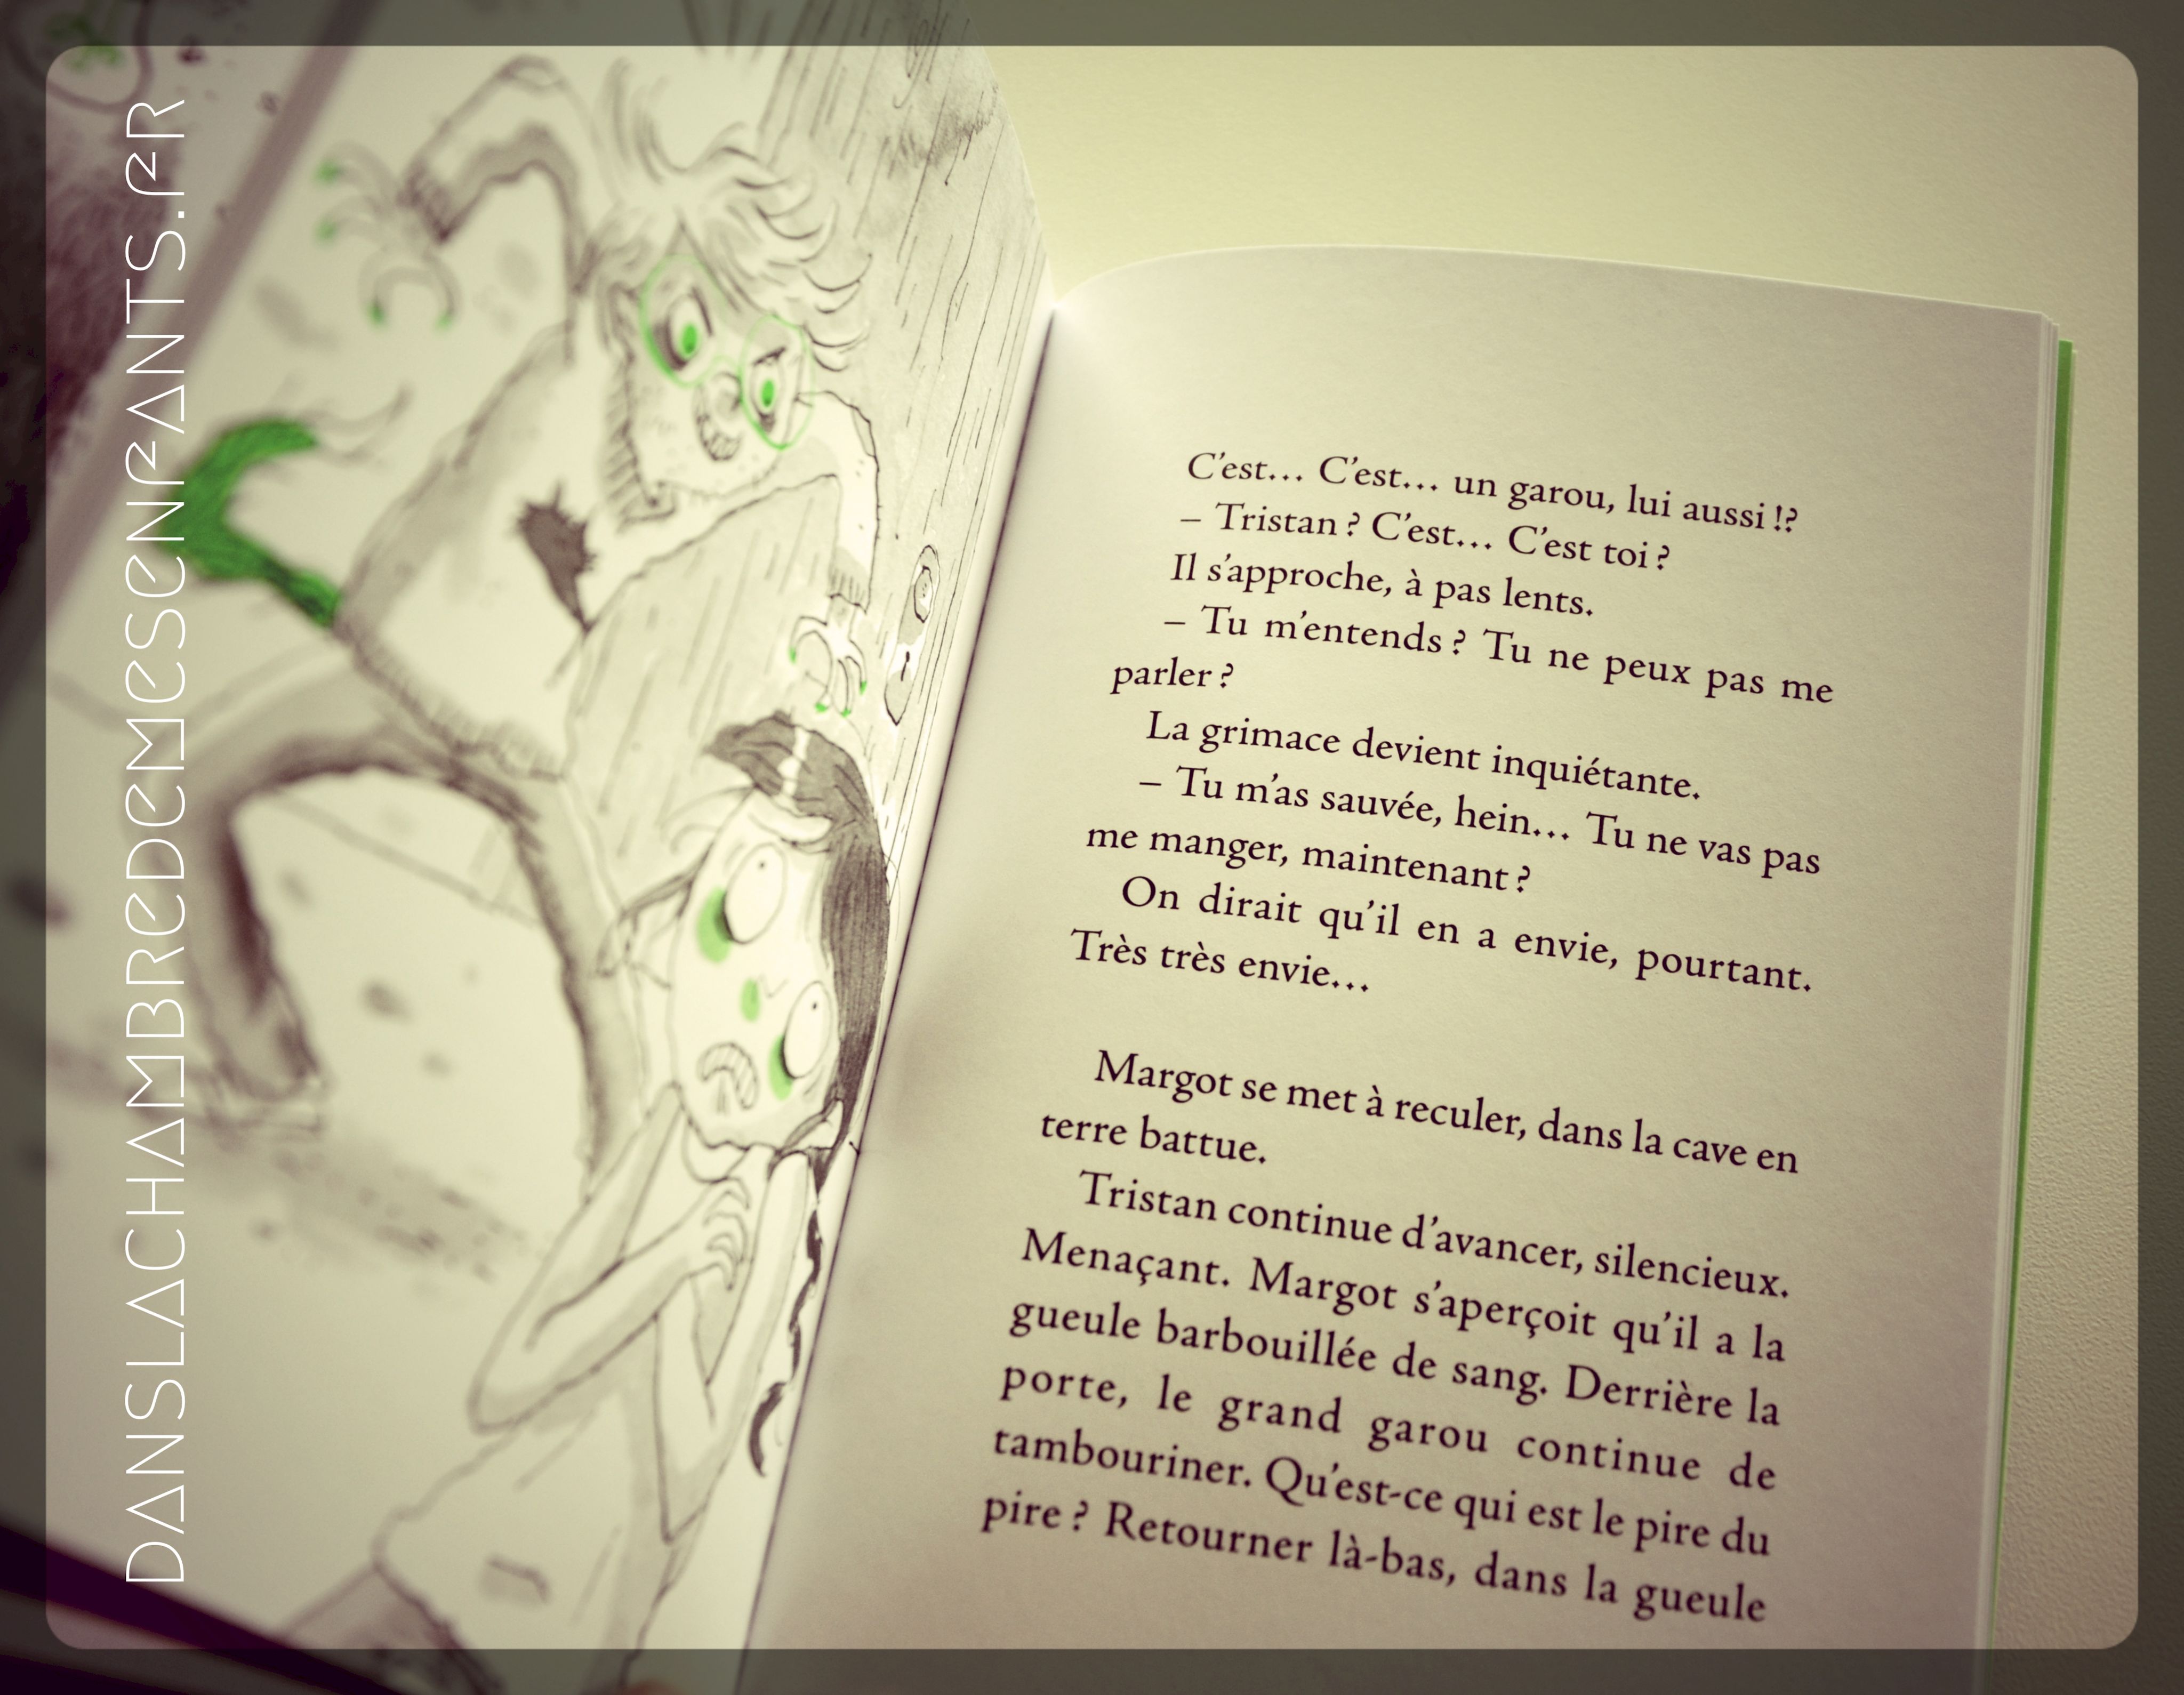 DANSLACHAMBREDEMESENFANTS.FR
C'est… C'est… un garou, lui aussi !?
– Tristan ? C'est… C'est toi ?
Il s'approche, à pas lents.
– Tu m'entends ? Tu ne peux pas me
parler ?
La grimace devient inquiétante.
– Tu m'as sauvée, hein… Tu ne vas pas
me manger, maintenant ?
On dirait qu'il en a envie, pourtant.
Très très envie…
Margot se met à reculer, dans la cave en
terre battue.
Tristan continue d'avancer, silencieux.
Menaçant. Margot s'aperçoit qu'il a la
gueule barbouillée de sang. Derrière la
porte, le grand garou continue de
tambouriner. Qu'est-ce qui est le pire du
pire ? Retourner là-bas, dans la gueule